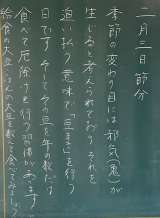 二月三日 節分
季節の変わり目には邪気(鬼)が
生じると考えられており、それを
追い払う意味で「豆まき」を行う
日です。そしてその豆を年の数だけ
食べて厄除けを行う習慣があります。
給食の大豆ごはんの大豆を数えて食べてみましょう